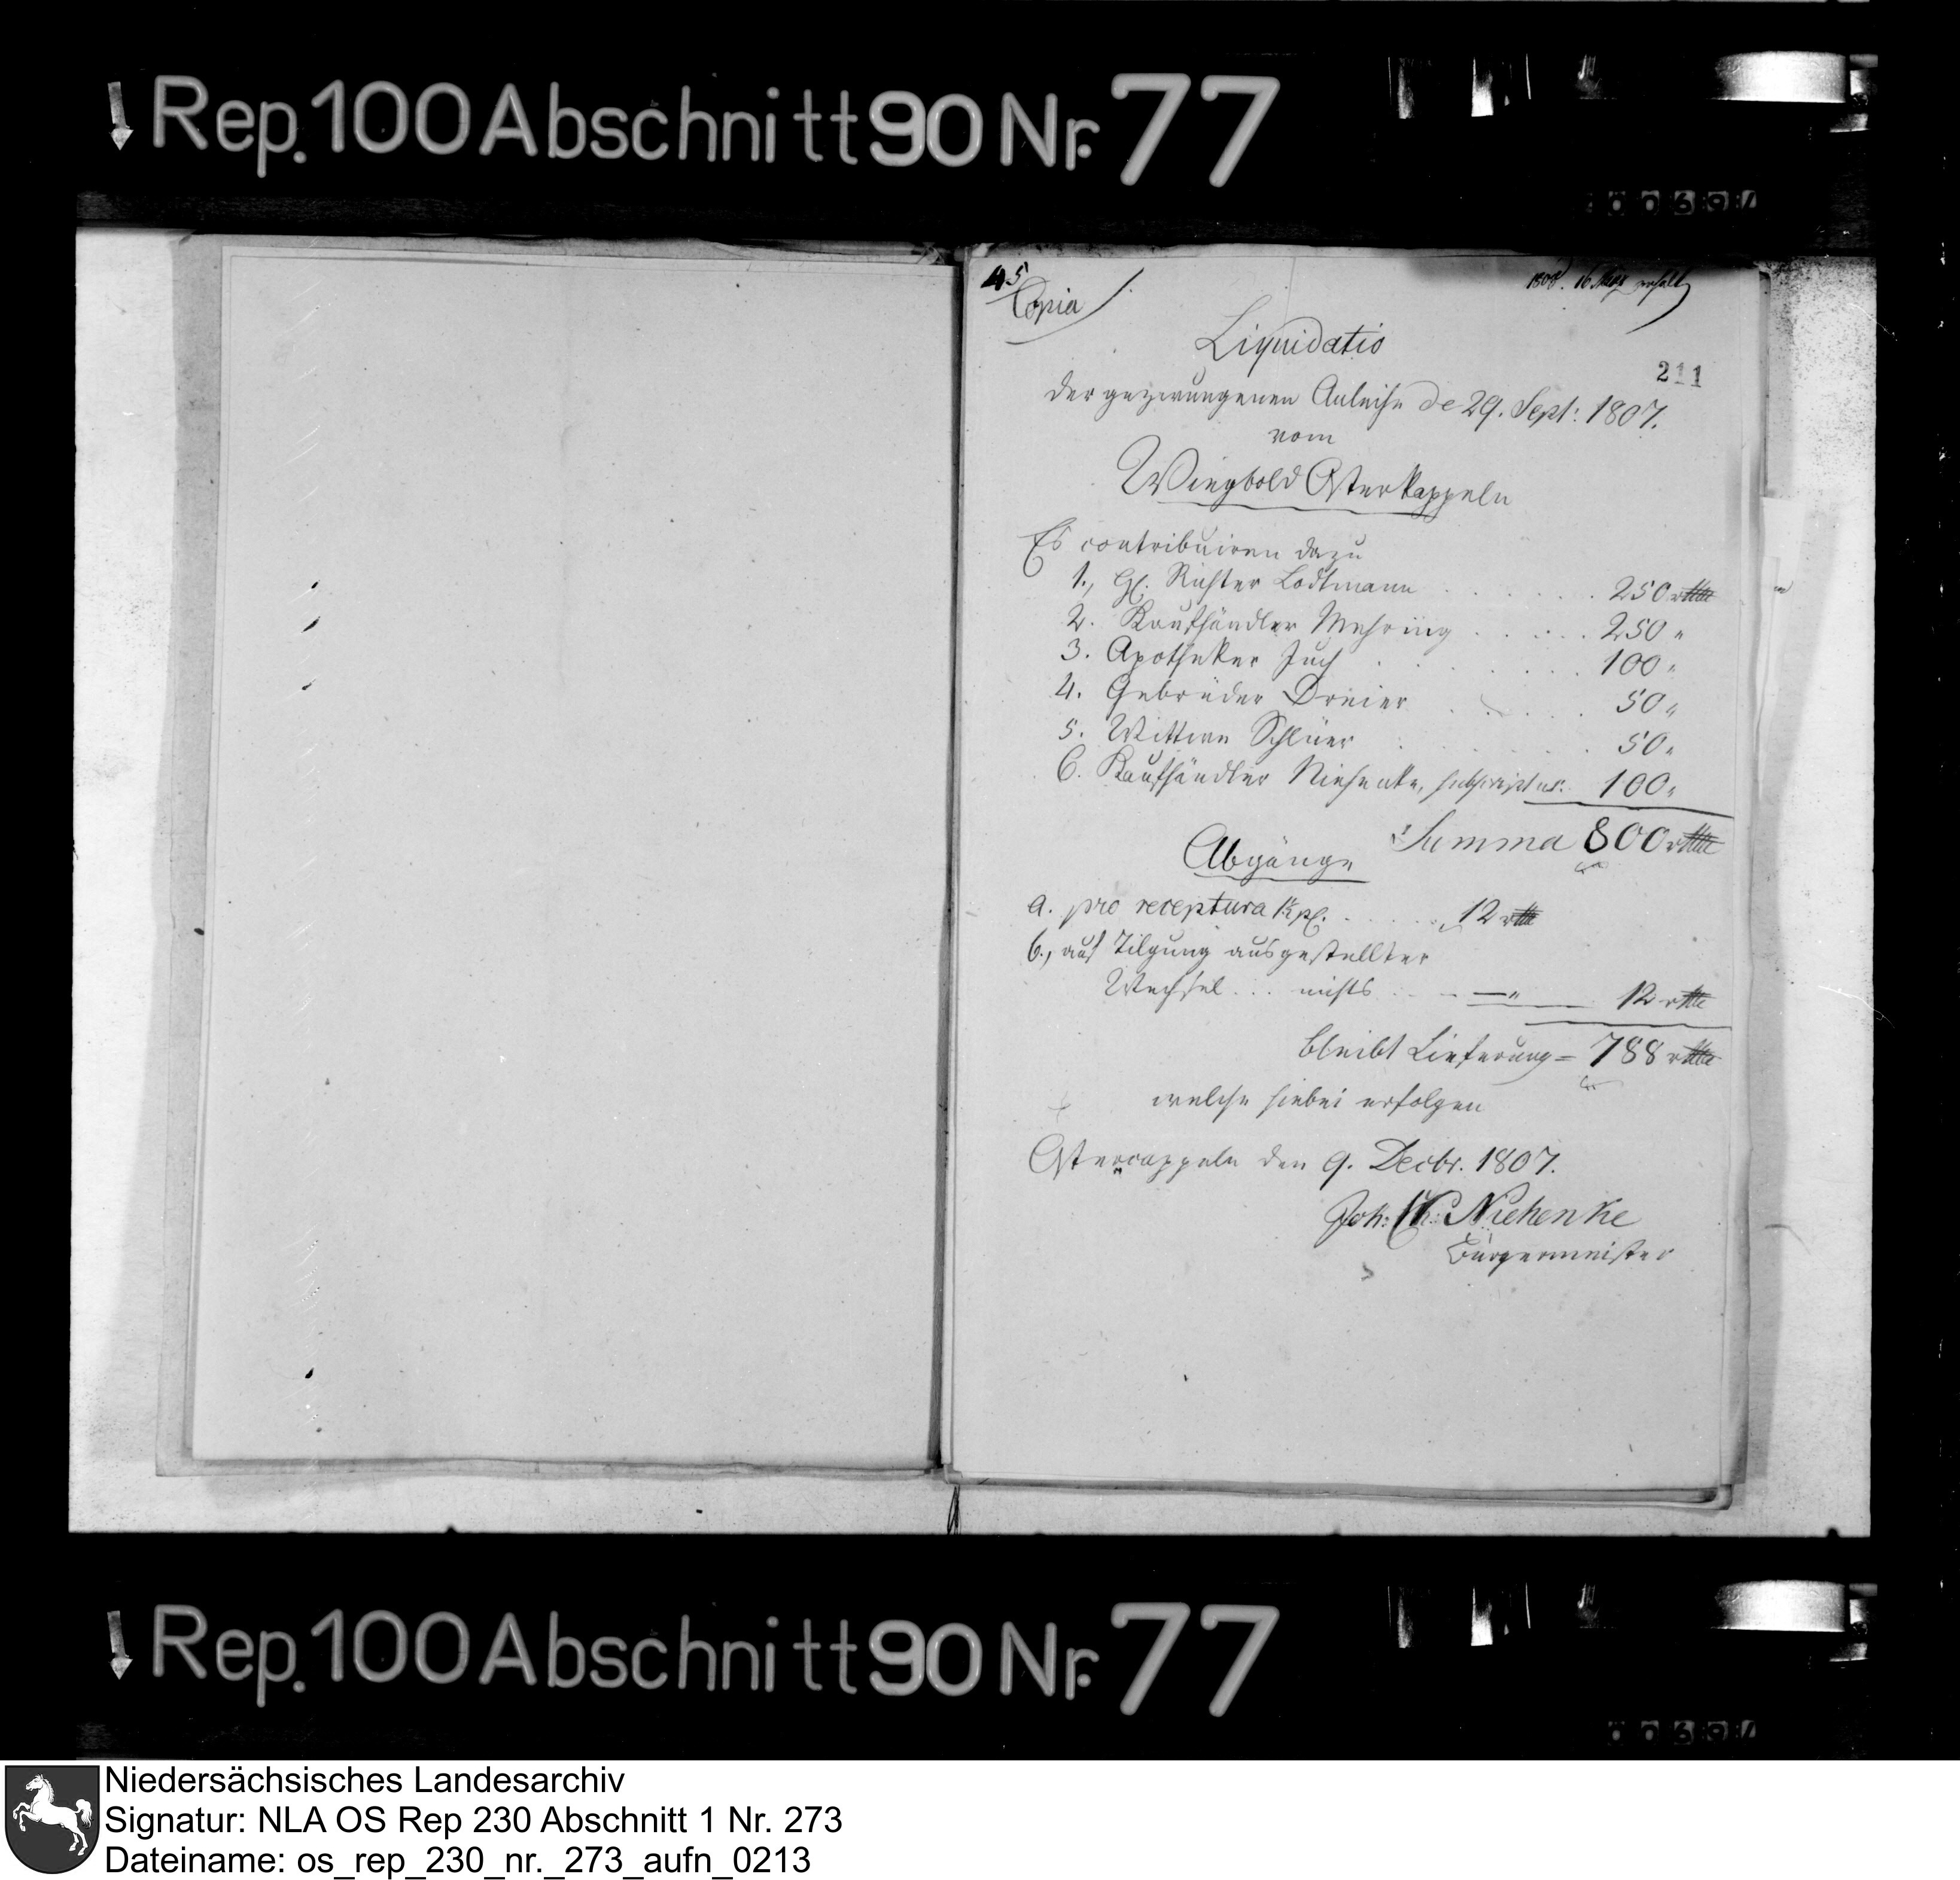 Rep. 100 Abschnitt 90 Nr. 77
45
Copia
1808. 16 März erhalt
211
Liquidatio
der gezwungenen Anleihe de 29. Sept: 1807.
vom
Wiegbold Osterkappeln
Es contribuiren dazu
1., H. Richter Lodtmann . . . . . . 250 rthlr
2. Kaufhändler Mehring . . . . . 250 "
3. Apotheker Juch . . . . . . 100 "
4. Gebrüder Dreier . . . . . 50 "
5. Wittwe Schlüer . . . . . . 50 "
6. Kaufhändler Niehenke, subscriptus. 100 "
Summa 800 rthlr
Abgänge
a. pro receptura . . . . . 12 rthlr
b., auf Tilgung ausgestellter
Wechsel . . . nichts . . . — " — 12 rthlr
bleibt Lieferung = 788 rthlr
welche hiebei erfolgen
Ostercappeln den 9. Decbr. 1807.
Joh: Niehenke
Bürgermeister
Rep. 100 Abschnitt 90 Nr. 77
Niedersächsisches Landesarchiv
Signatur: NLA OS Rep 230 Abschnitt 1 Nr. 273
Dateiname: os_rep_230_nr._273_aufn_0213